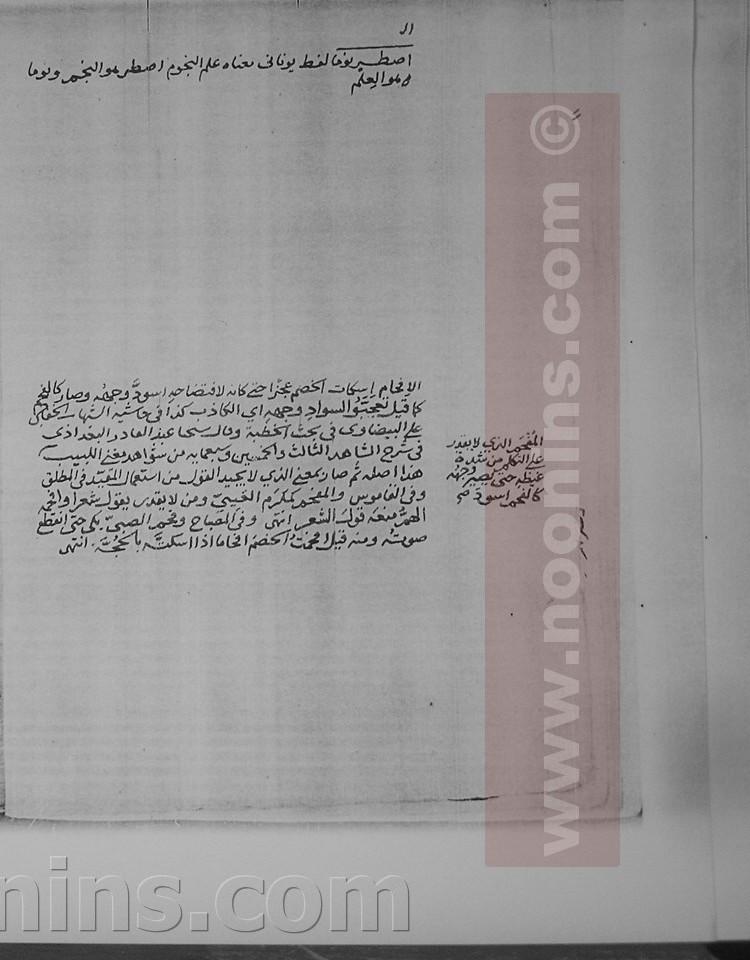 ال
اصطرنوما لفظ يوناني معناه علم النجوم اصطر هو النجم ونوما
هو العلم
الافحام اسكات الخصم عجزا حتى كانه لافتضاحه اسودّ وجهه وصار كالفحم
كما قيل السواد وجهه اي الكاذب كذا في حاشية الشهاب الخفاجي
على البيضاوي في بحث الخطبة وقال شيخنا عبد القادر البغدادي
في شرح الشاهد الثالث والخمسين وسبعمايه من شواهد مغني اللبيب
هذا اصله ثم صار بمعنى الذي لا يجيد القول من استعمال المقيّد في المطلق
وفي القاموس والمفحم كمكرم العَيِيّ ومن لا يقدر يقول شعرا وافحمه
الهمّ منعه قول الشعر انتهى وفي المصباح وفحم الصبيّ بكى حتى انقطع
صوته ومنه قيل افحمتُ الخصم افحاما اذا اسكتّه بالحُجّة انتهى
المُفْحَم الذي لا يقدر
على التكلم من شدة
غيظه حتى يصير وجهه
كالفحم اسود
www.noonins.com ©
nins.com